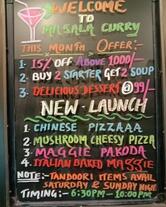 WELCOME
TO
MASALA CURRY
THIS MONTH OFFER:-
1. 15% OFF ABOVE 1000/-
2. BUY 2 STARTER GET 2 SOUP
3. DELICIOUS DESSERT @ 99/-
NEW-LAUNCH
1. CHINESE PIZZAAA
2. MUSHROOM CHEESY PIZZA
3. MAGGIE PAKODA
4. ITALIAN BAKED MAGGIE
NOTE:- TANDOORI ITEMS AVAIL
SATURDAY & SUNDAY NIGHT
TIMING:- 6:30PM-10:00PM